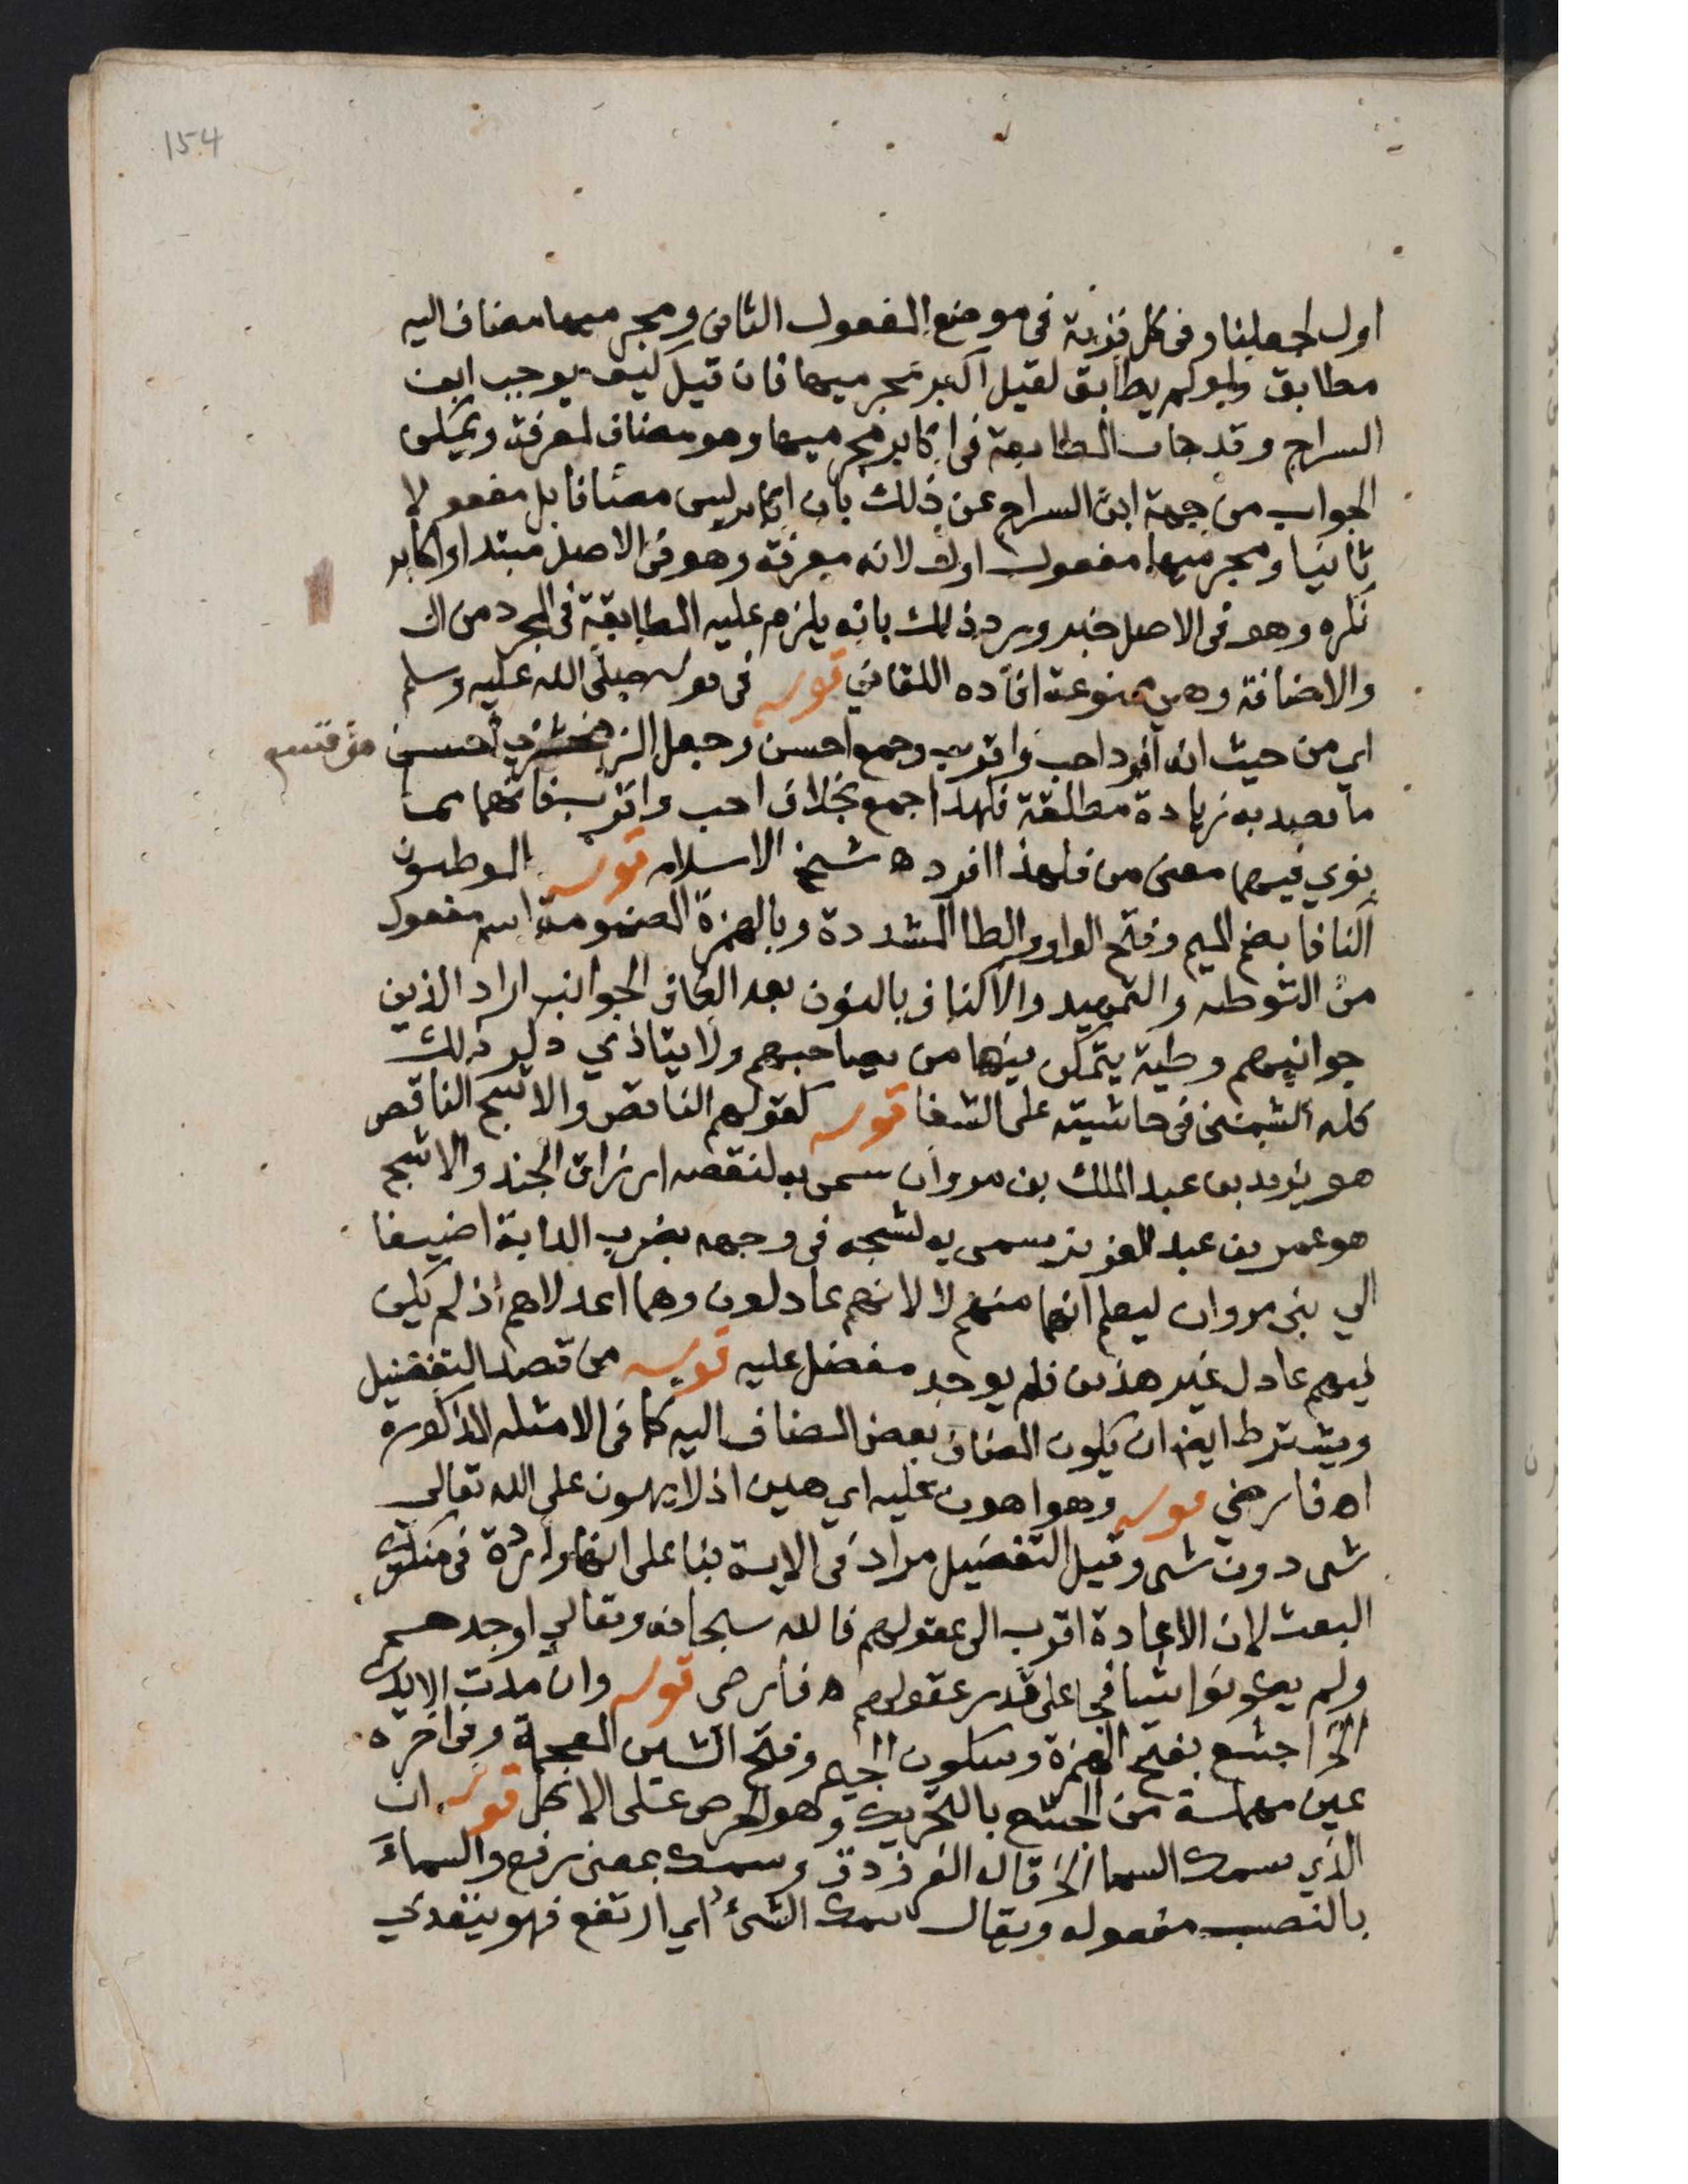 154
اول لجعلنا وفى كل قرية فى موضع المفعول الثانى ومجرميها مضاف اليه
مطابق ولو لم يطابق لقيل اكبر مجرميها فان قيل كيف يوجب ابن
السراج وقد جات المطابقة فى اكابر مجرميها وهو مضاف لمعرفة ويمكن
الجواب من جهة ابن السراج عن ذلك بان اكابر ليس مضافا بل مفعولا
ثانيا ومجرميها مفعول اول لانه معرفة وهو فى الاصل مبتدا واكابر
نكره وهو فى الاصل خبر ويرد ذلك بانه يلزم عليه المطابقة فى المجرد من ال
والاضافة وهى ممنوعة افاده اللقاني قوله فى قوله صلى الله عليه وسلم
اي من حيث انه افرد احب واقرب وجمع احسن وجعل الزمخشري احسن
ما قصد به زيادة مطلقة فلهذا جمع بخلاف احب واقرب فانهما مما
نوي فيهما معنى من فلهذا افرد ه شيخ الاسلام قوله الموطون
اكنافا بضم الميم وفتح الواو والطا المشددة وبالهمزة المضمومة اسم مفعول
من التوطه والتمهيد والاكناف بالنون بعد الكاف الجوانب اراد الذين
جوانبهم وطية يتمكن فيها من يصاحبهم ولا يتاذي ذكر ذلك
كله الشمنى فى حاشيته على الشفا قوله كقولهم الناقص والاشج الناقص
هو يزيد بن عبد الملك بن مروان سمى به لنقصه ارزاق الجند والاشج
هو عمر بن عبد العزيز سمى به لشجه فى وجهه بضرب الدابة اضيفا
الي بنى مروان ليعلم انهما منهم لا لانهم عادلون وهما اعدلاهم اذ لم يكن
فيهم عادل غير هذين فلم يوجد مفضل عليه قوله من قصد التفضيل
ويشترط ايضا ان يكون المضاف بعض المضاف اليه كما فى الامثله المذكورة
اه فارضي قوله وهو اهون عليه اي هين اذ لا يهون على الله تعالي
شى دون شى وقيل التفضيل مراد فى الاية بنا على انها واردة فى منكري
البعث لان الاعادة اقرب الى عقولهم فالله سبحانه وتعالي اوجدهم
ولم يكونوا شيا فجا على قدر عقولهم ه فارضى قوله وان مدت الايدي
الخ اجشع بفتح الهمزة وسكون الجيم وفتح الشين المعجمة وفى اخره
عين مهملة من الجشع بالتحريك وهو الحرص على الاكل قوله ان
الذي سمك السما الخ قاله الفرزدق وسمك بمعنى رفع والسماء
بالنصب مفعوله ويقال سمك الشئ اي ارتفع فهو يتعدي